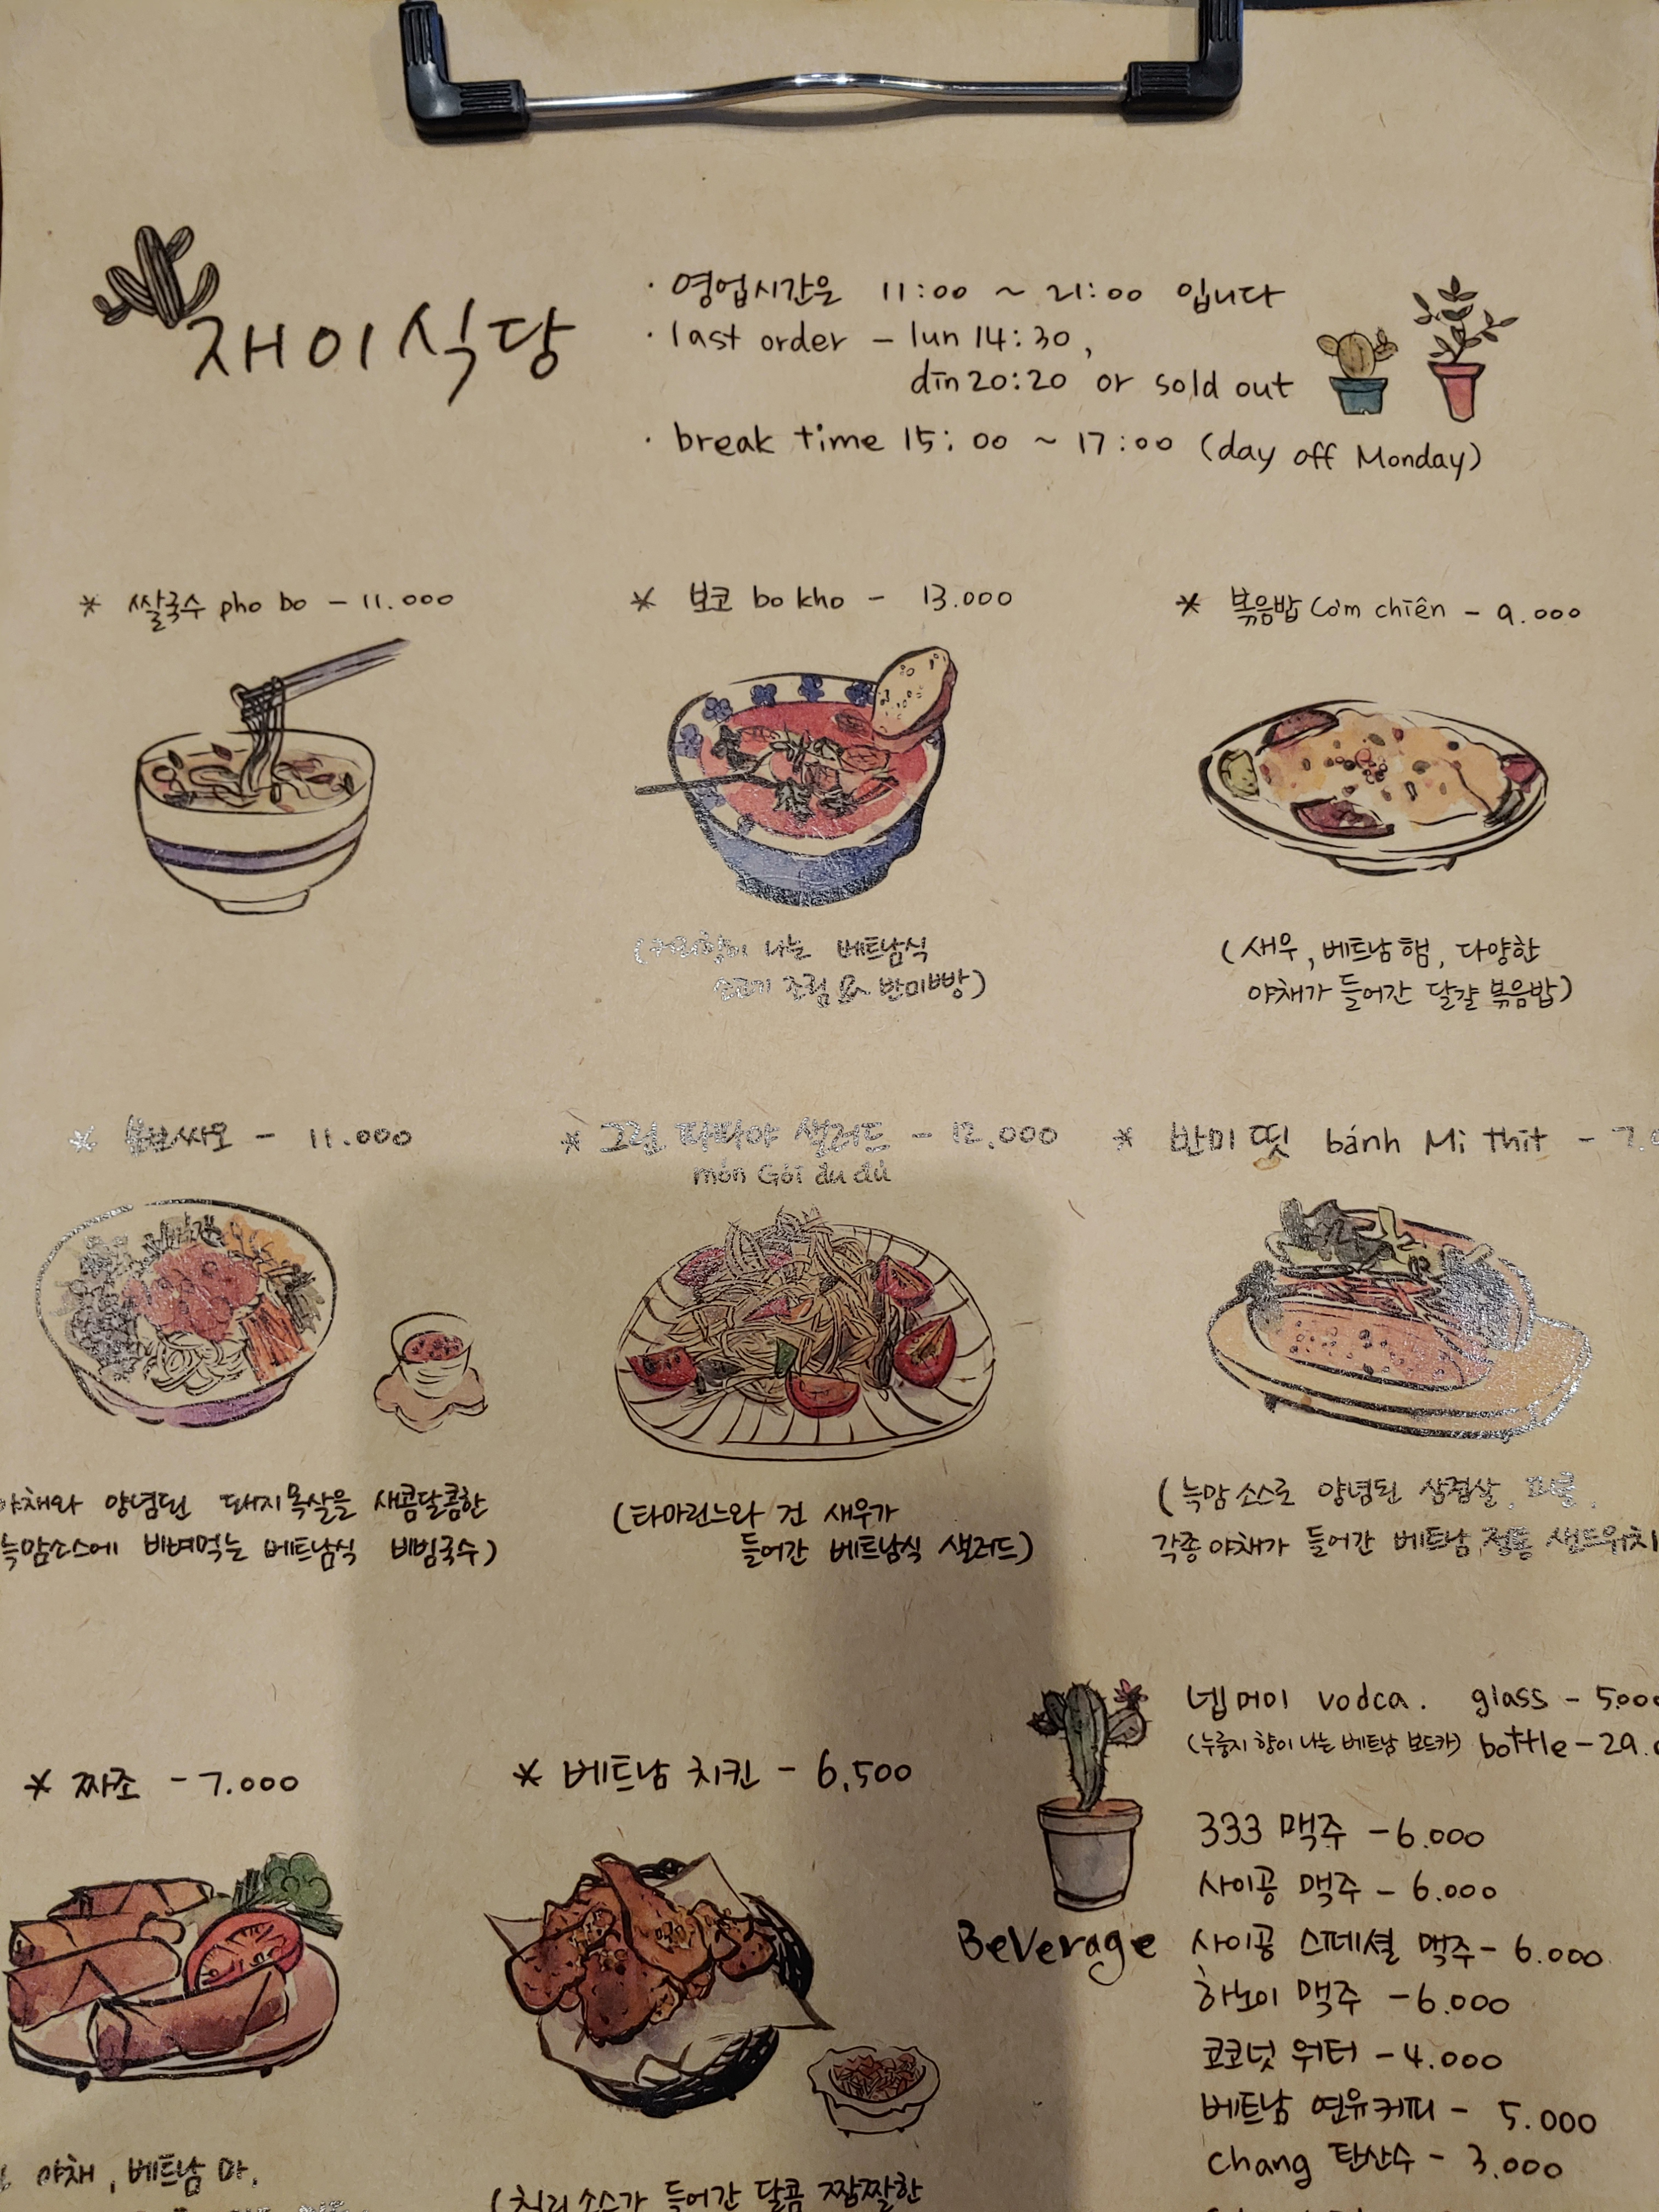 재이식당
· 영업시간은 11:00 ~ 21:00 입니다
· last order – lun 14:30,
din 20:20 or sold out
· break time 15:00 ~ 17:00 (day off Monday)
* 쌀국수 pho bo – 11.000
* 보코 bo kho – 13.000
* 볶음밥 Cơm chiên – 9.000
나는 베트남식
조림 & 반미빵)
(새우, 베트남햄, 다양한
야채가 들어간 달걀 볶음밥)
* 분보싸오 – 11.000
* 그린 파파야 샐러드 – 12.000
món Gói đu đủ
* 반미 띳 bánh Mi thit – 7.0
야채와 양념된 돼지목살을 새콤달콤한
늑맘소스에 비벼먹는 베트남식 비빔국수)
(타마린느와 건 새우가
들어간 베트남식 샐러드)
(늑맘소스로 양념된 삼겹살, 피클,
각종야채가 들어간 베트남 정통 샌드위치
* 짜조 – 7.000
* 베트남 치킨 – 6,500
야채, 베트남 마,
(칠리소스가 들어간 달콤 짭짤한
Beverage
넵머이 vodca. glass – 5.000
(누룽지 향이 나는 베트남 보드카) bottle – 29.
333 맥주 – 6.000
사이공 맥주 – 6.000
사이공 스페셜 맥주 – 6.000
하노이 맥주 – 6.000
코코넛 워터 – 4.000
베트남 연유커피 – 5.000
Chang 탄산수 – 3.000